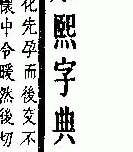 熙字典
化先孕而後交不
懷中令暖然後切